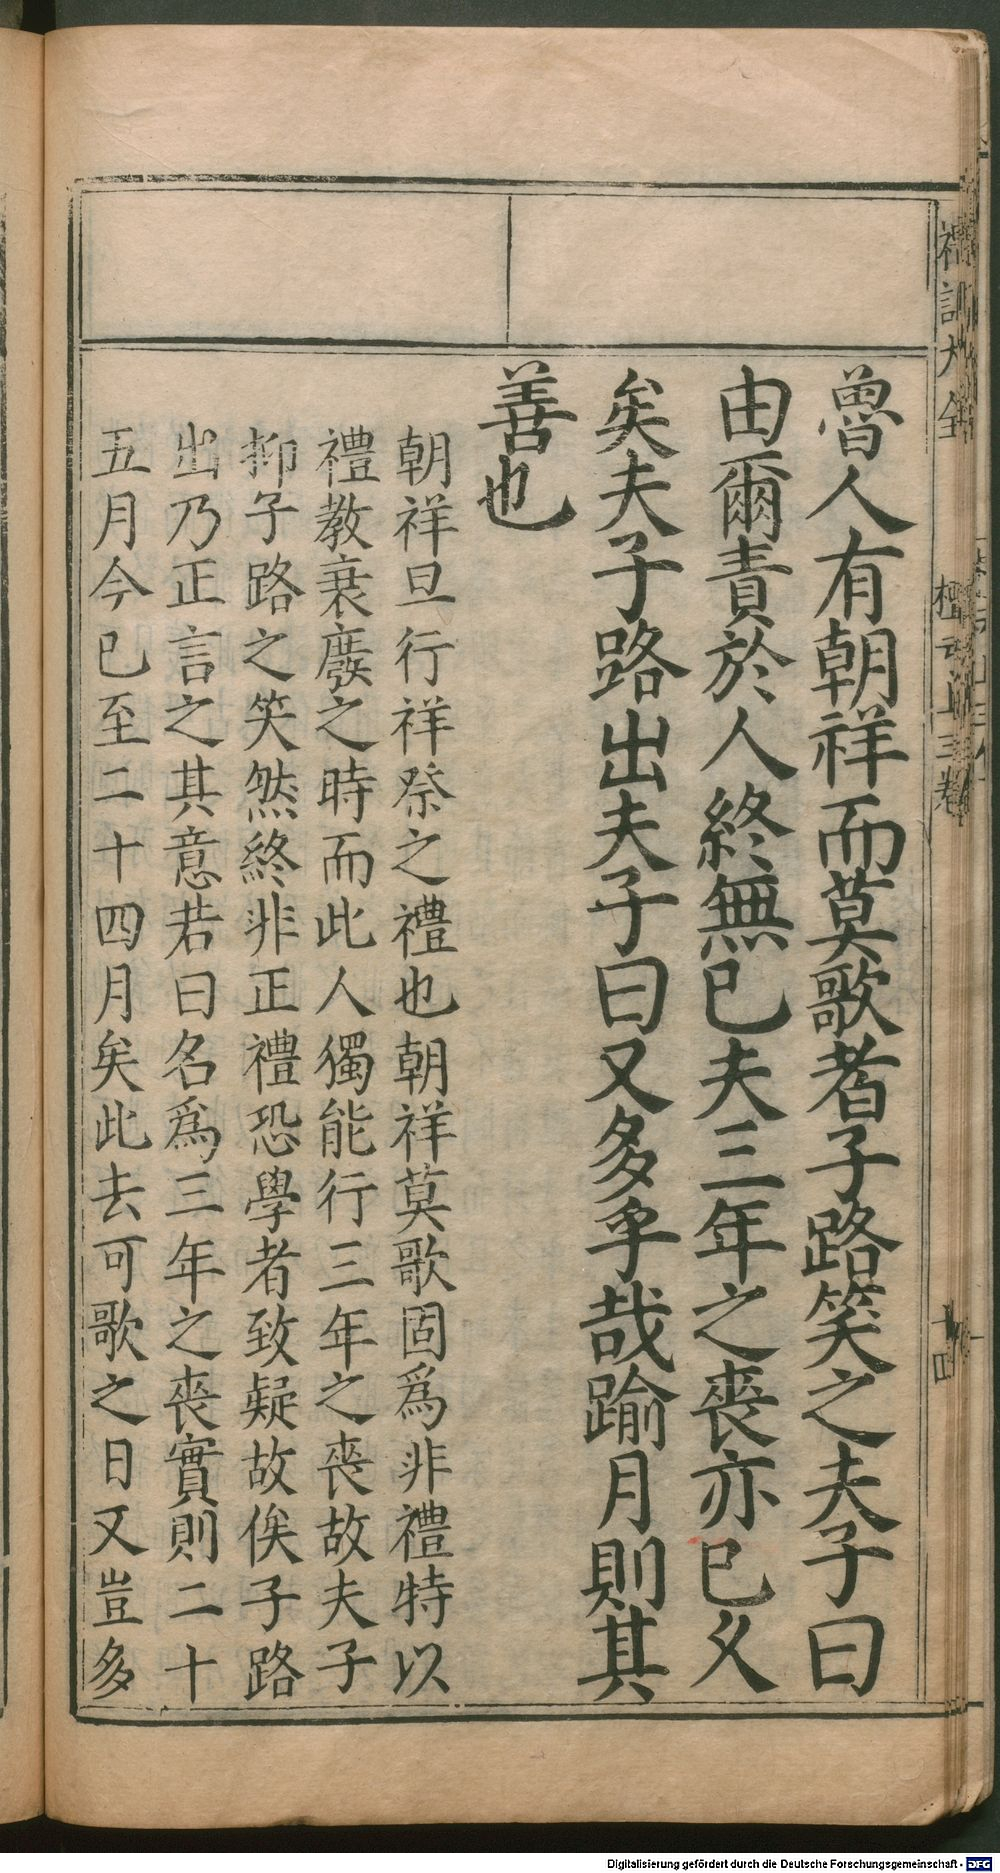 魯人有朝祥而莫歌者子路笑之夫子曰
由爾責於人終無已夫三年之喪亦已久
矣夫子路出夫子曰又多乎哉踰月則其
善也
朝祥旦行祥祭之禮也朝祥莫歌固爲非禮特以
禮教衰廢之時而此人獨能行三年之喪故夫子
抑子路之笑然終非正禮恐學者致疑故俟子路
出乃正言之其意若曰名爲三年之喪實則二十
五月今已至二十四月矣此去可歌之日又豈多
禮記大全
檀弓上三卷
十四
Digitalisierung gefördert durch die Deutsche Forschungsgemeinschaft - DFG